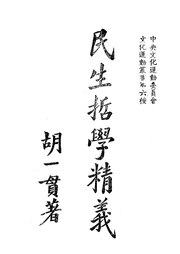 中央文化運動委員會
文化運動叢書第六種
民生哲學精義
胡一貫著